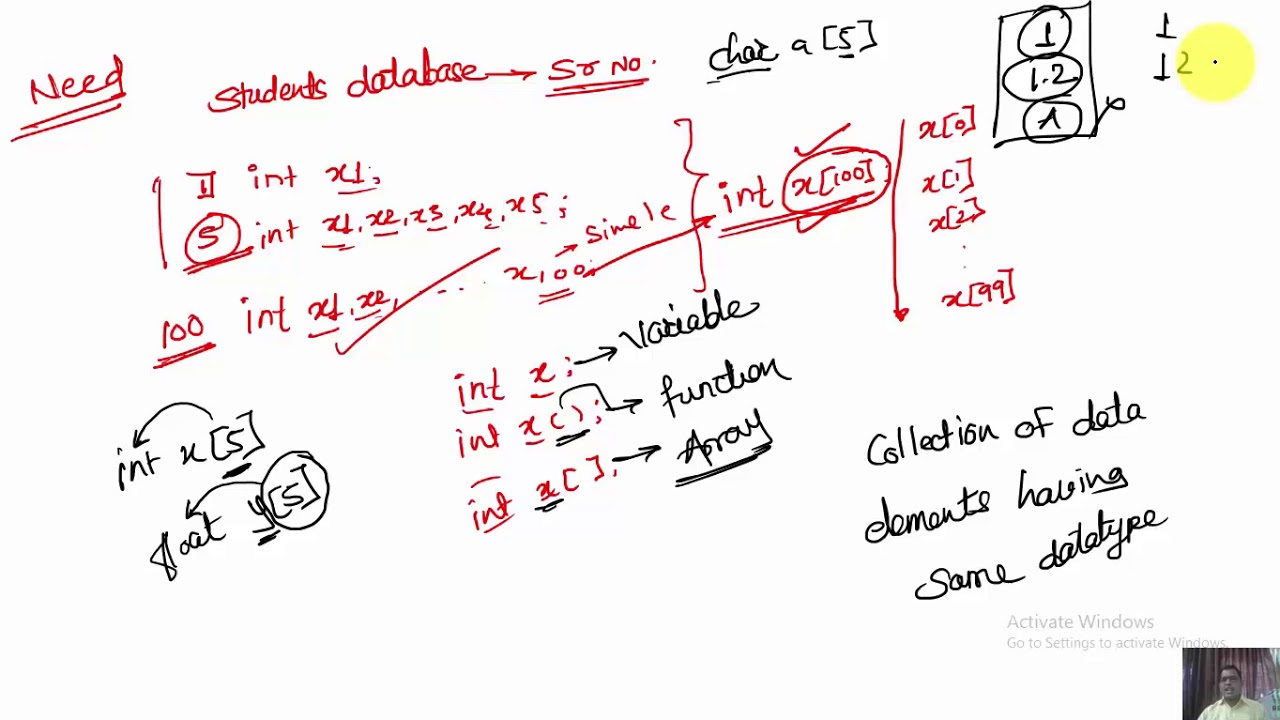 Need
Students database → Sr No.
char a[5]
1
1.2
A
1
12
1 int x1;
5 int x1, x2, x3, x4, x5;
100 int x1, x2, .... x100
→ Simele
int x[100]
x[0]
x[1]
x[2]
.
x[99]
int x; → Variable
int x( ); → function
int x[ ]; → Array
int x[5]
float y[5]
Collection of data
elements having
Same datatype
Activate Windows
Go to Settings to activate Windows.